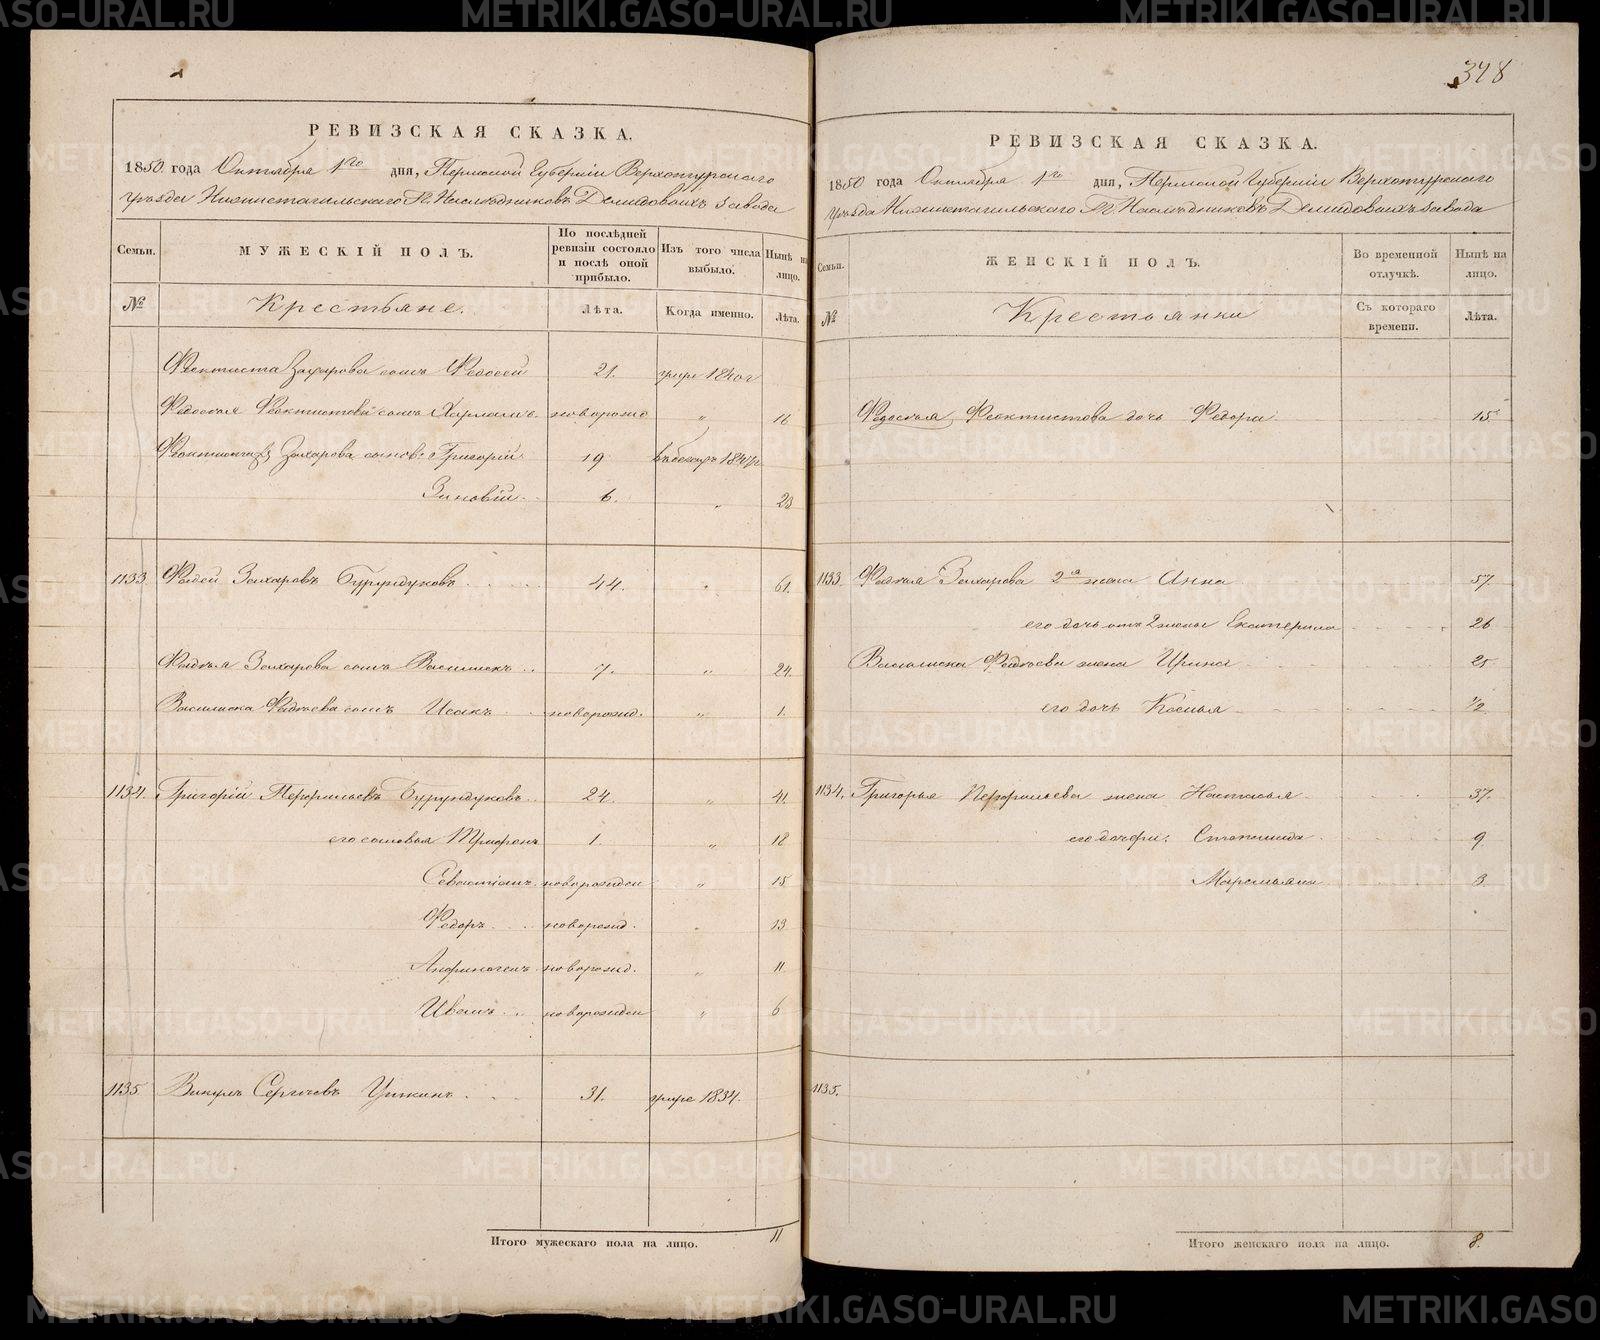 348
РЕВИЗСКАЯ СКАЗКА.
1850 года Октября 1го дня, Пермской Губерніи Верхотурскаго
уѣзда Нижнетагильскаго Г.г. Наслѣдниковъ Демидовыхъ завода
Семьи.
МУЖЕСКІЙ ПОЛЪ.
По послѣдней ревизіи состояло и послѣ оной прибыло.
Изъ того числа выбыло.
Нынѣ на лицо.
№
Крестьяне.
Лѣта.
Когда именно.
Лѣта.
Феоктиста Захарова сынъ Федосей 21. умре 1840 г
Федосѣя Феоктистова сынъ Харлампъ новорожд " 16
Феоктиста Захарова сынов: Григорій 19
Зиновій 6. " 23
1133 Фадей Захаровъ Бурундуковъ 44. " 61.
Фадѣя Захарова сынъ Василискъ 7. " 24.
Василиска Фадѣева сынъ Исакъ новорожд. " 1.
1134. Григорій Перфильевъ Бурундуковъ 24. " 41.
его сыновья Трифонъ 1. " 18
Севастіанъ новорожден " 15
Федоръ новорожд. " 13
Анфиногенъ новорожд. " 11.
Иванъ новорожден " 6
1135. Викулъ Сергѣевъ 31. умре 1834.
Итого мужескаго пола на лицо. 11
РЕВИЗСКАЯ СКАЗКА.
1850 года Октября 1го дня, Пермской Губерніи Верхотурскаго
уѣзда Нижнетагильскаго Г.г. Наслѣдниковъ Демидовыхъ завода
Семьи.
ЖЕНСКІЙ ПОЛЪ.
Во временной отлучкѣ.
Нынѣ на лицо.
№
Крестьянки
Съ котораго времени.
Лѣта.
Федосѣя Феоктистова дочь Федора 15
1133 Фадѣя Захарова 2я жена Анна 57
его дочь отъ 2 жены Екатерина 26
Василиска Фадѣева жена Ирина 25
его дочь 1/2
1134. Григорья Перфильева жена Настасья 37.
его дочери: Степанида 9.
Маремьяна 3
1135.
Итого женскаго пола на лицо. 8.
METRIKI.GASO-URAL.RU